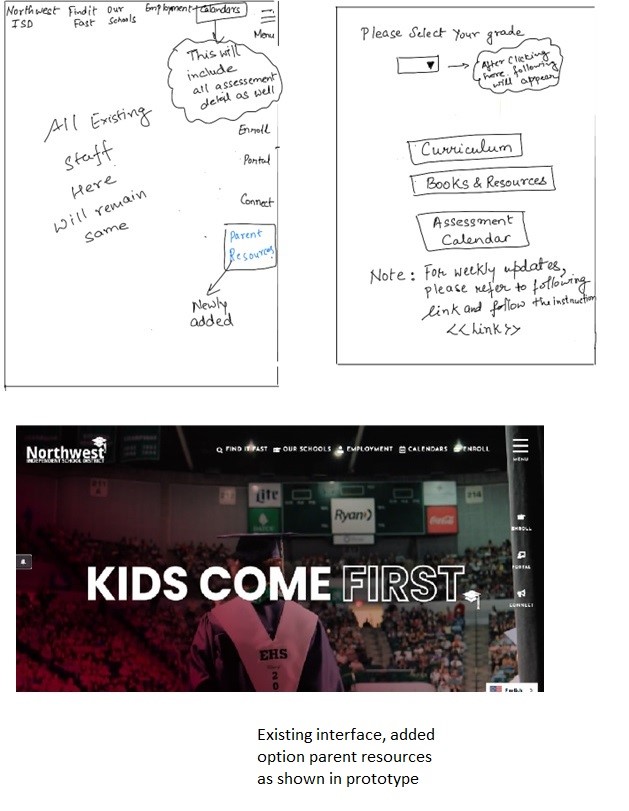 Northwest ISD
Find it Fast
Our Schools
Employment
Calendars
Menu
This will
include
all assessement
detail as well
All Existing
Staff
Here
Will remain
same
Enroll
Portal
Connect
Parent
Resources
Newly
added
Please Select Your grade
After clicking
here following
will appear
Curriculum
Books & Resources
Assessment
Calendar
Note: For weekly updates,
please refer to following
link and follow the instruction
<<Link>>
Northwest
INDEPENDENT SCHOOL DISTRICT
FIND IT FAST OUR SCHOOLS EMPLOYMENT CALENDARS ENROLL
MENU
Lite
Ryan
Coca-Cola
ENROLL
PORTAL
CONNECT
KIDS COME FIRST
EHS
2
0
English
Existing interface, added
option parent resources
as shown in prototype